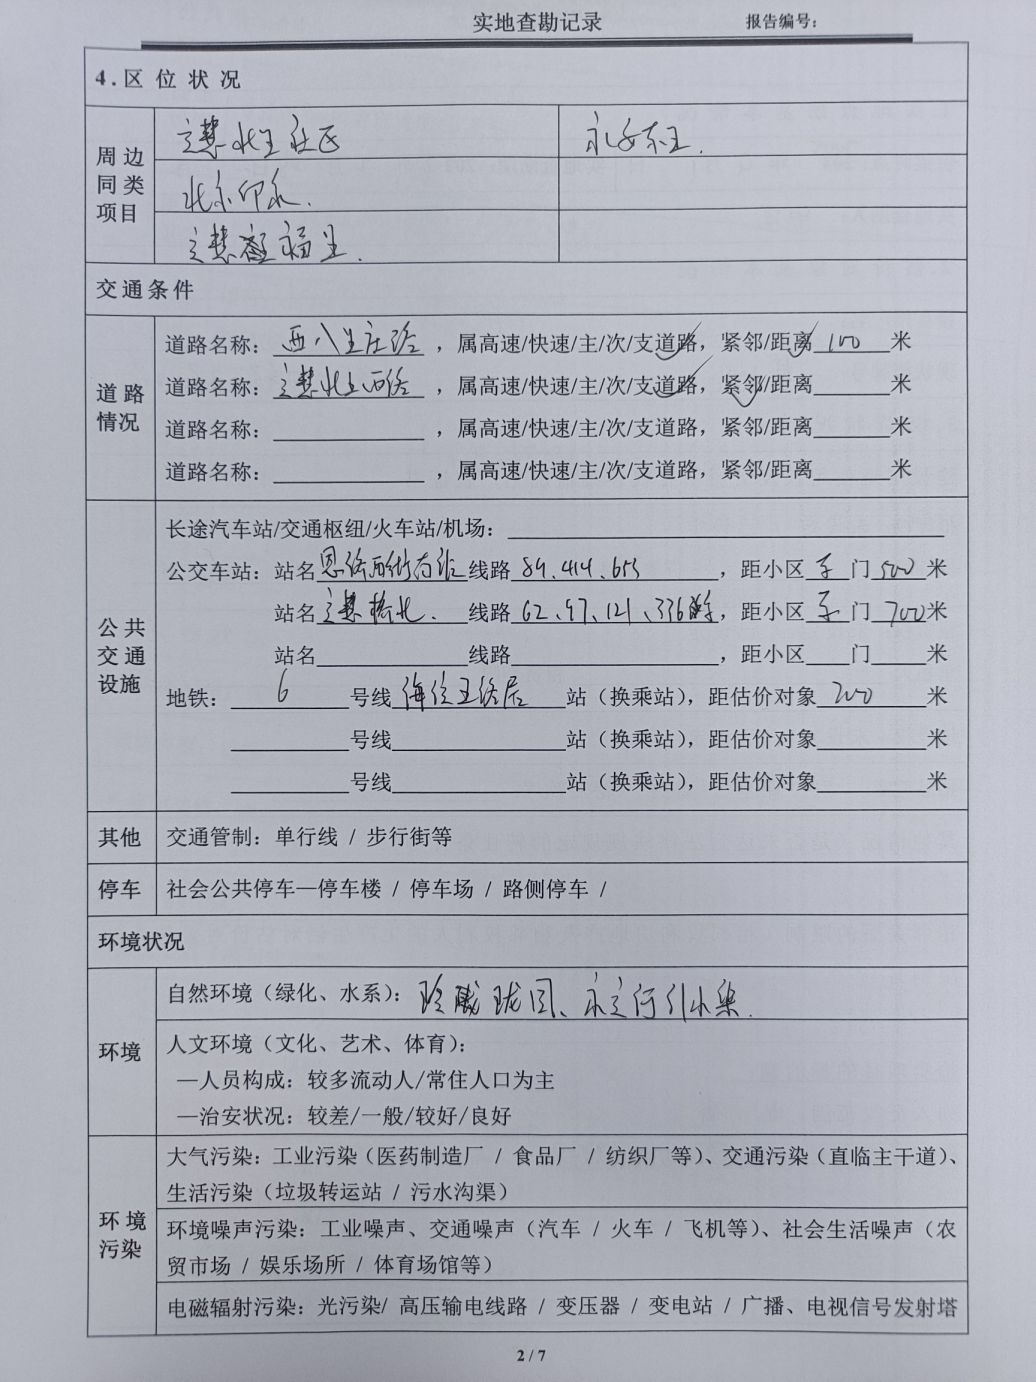 实地查勘记录 报告编号：
4.区 位 状 况
周 边 同 类 项目
定慧北里社区 永安东里.
北京印象.
定慧福里.
交通条件
道 路 情况
道路名称：西八里庄路，属高速/快速/主/次/支道路，紧邻/距离 100 米
道路名称：定慧北里西路，属高速/快速/主/次/支道路，紧邻/距离 米
道路名称： ，属高速/快速/主/次/支道路，紧邻/距离 米
道路名称： ，属高速/快速/主/次/支道路，紧邻/距离 米
公 共 交通 设施
长途汽车站/交通枢纽/火车站/机场：
公交车站：站名 恩济西街南站 线路 84.414.653 ，距小区 东 门 500 米
站名 定慧桥北. 线路 62、97、121、336 ，距小区 东 门 700 米
站名 线路 ，距小区 门 米
地铁： 6 号线 海淀五路居 站（换乘站），距估价对象 200 米
号线 站（换乘站），距估价对象 米
号线 站（换乘站），距估价对象 米
其他 交通管制：单行线 / 步行街等
停车 社会公共停车—停车楼 / 停车场 / 路侧停车 /
环境状况
环境
自然环境（绿化、水系）：玲珑园、永定河引水渠.
人文环境（文化、艺术、体育）：
—人员构成：较多流动人/常住人口为主
—治安状况：较差/一般/较好/良好
环 境 污染
大气污染：工业污染（医药制造厂 / 食品厂 / 纺织厂等）、交通污染（直临主干道）、
生活污染（垃圾转运站 / 污水沟渠）
环境噪声污染：工业噪声、交通噪声（汽车 / 火车 / 飞机等）、社会生活噪声（农
贸市场 / 娱乐场所 / 体育场馆等）
电磁辐射污染：光污染/ 高压输电线路 / 变压器 / 变电站 / 广播、电视信号发射塔
2 / 7